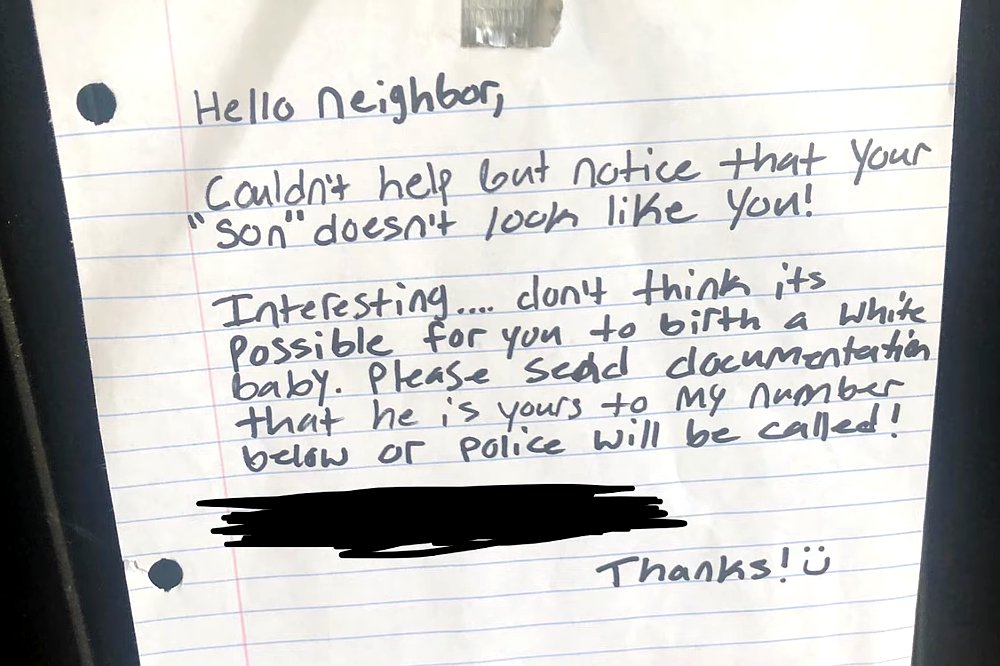 Hello neighbor,
Couldn't help but notice that your
"son" doesn't look like you!
Interesting.... don't think its
possible for you to birth a white
baby. Please send documentation
that he is yours to my number
below or police will be called!
Thanks! :)